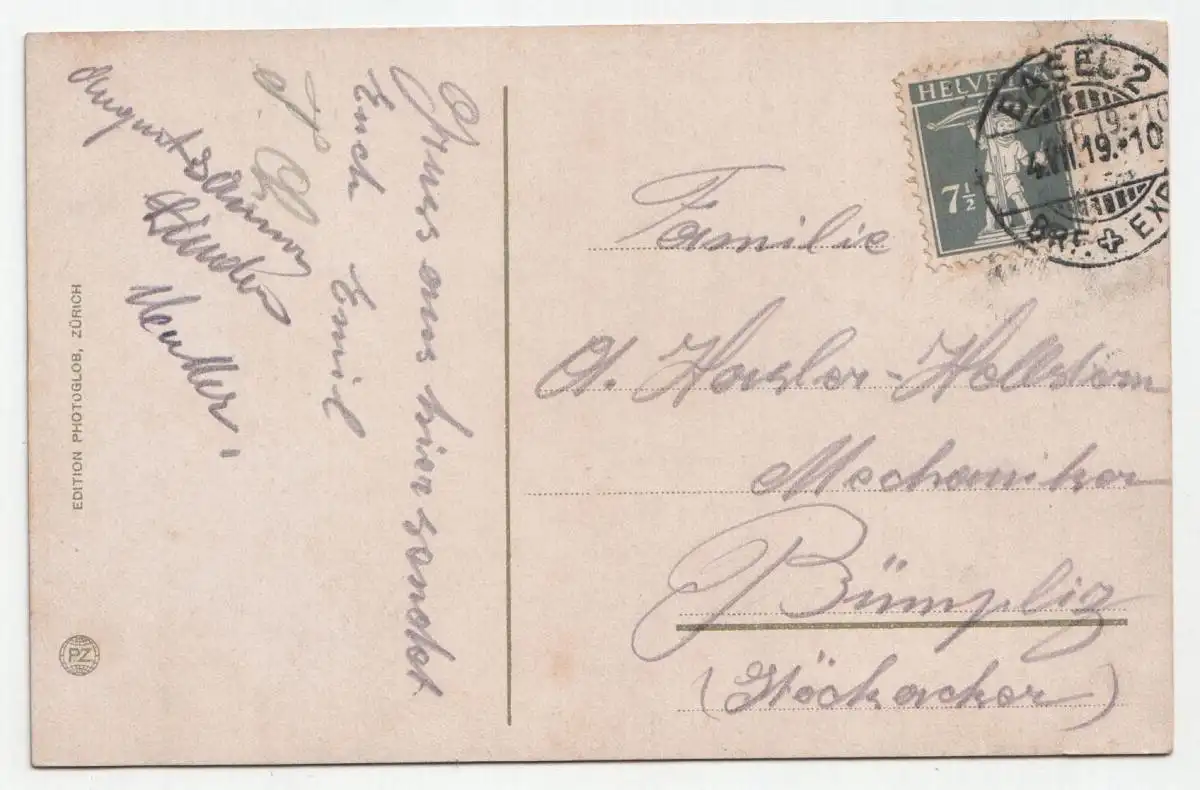 Gruss aus hier sendet
Euch Emil
August
EDITION PHOTOGLOB, ZÜRICH
PZ
HELVETIA
7½
BASEL 2
BRF. EXP.
4.VIII.19.-10
Familie
A. Hasler-Hellstern
Mechaniker
Bümpliz
(Stöckacker)